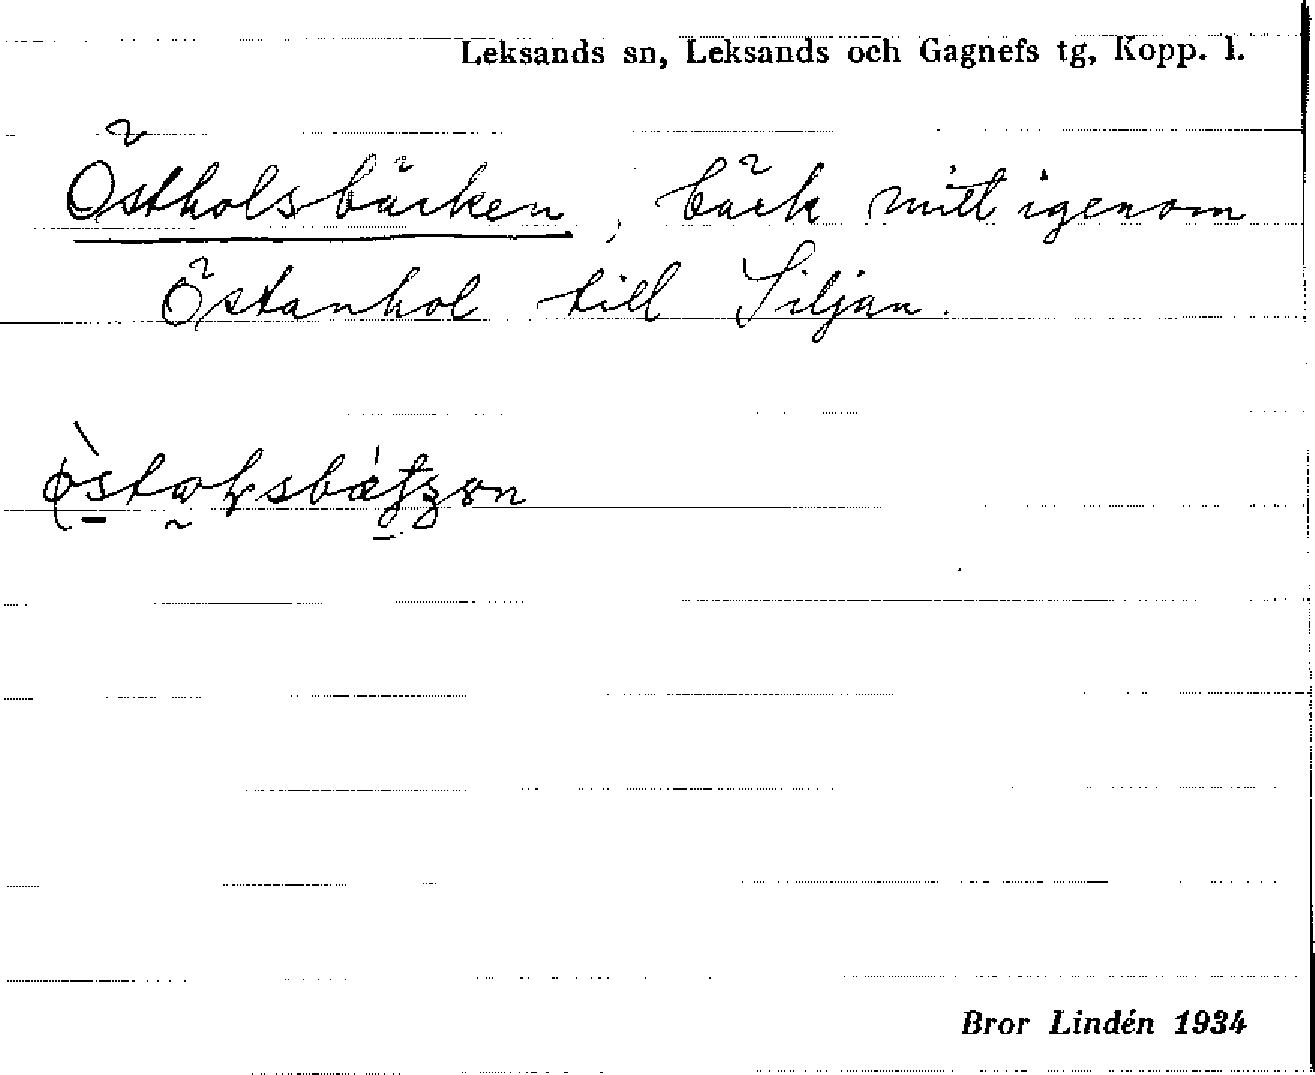 Leksands sn, Leksands och Gagnefs tg, Kopp. l.
Östholsbäcken, bäck mitt igenom
Östanhol till Siljan.
Bror Lindén 1934